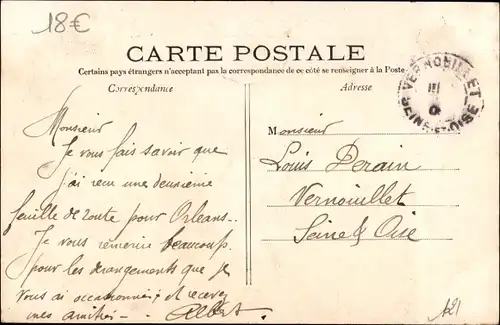 18€
CARTE POSTALE
Certains pays étrangers n'acceptant pas la correspondance de ce côté se renseigner à la Poste
Correspondance
Adresse
VERNOUILLET
SEINE-ET-OISE
Monsieur
Je vous fais savoir que
j'ai reçu une deuxième
feuille de route pour Orléans..
Je vous remercie beaucoup
pour les derangements que je
vous ai occasionnés; et recevez
mes amitiés - Albert.
Monsieur
Louis Derain
Vernouillet
Seine & Oise